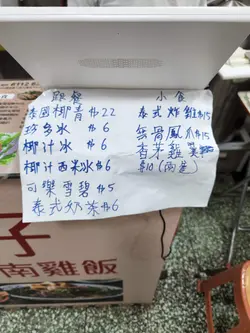 跟餐
泰國椰青 $22
珍多冰 $6
椰汁冰 $6
椰汁西米冰 $6
可樂雪碧 $5
泰式奶茶 $6
小食
泰式炸雞 $15
無骨鳳爪 $15
香茅雞翼
$10(兩隻)
子
南雞飯